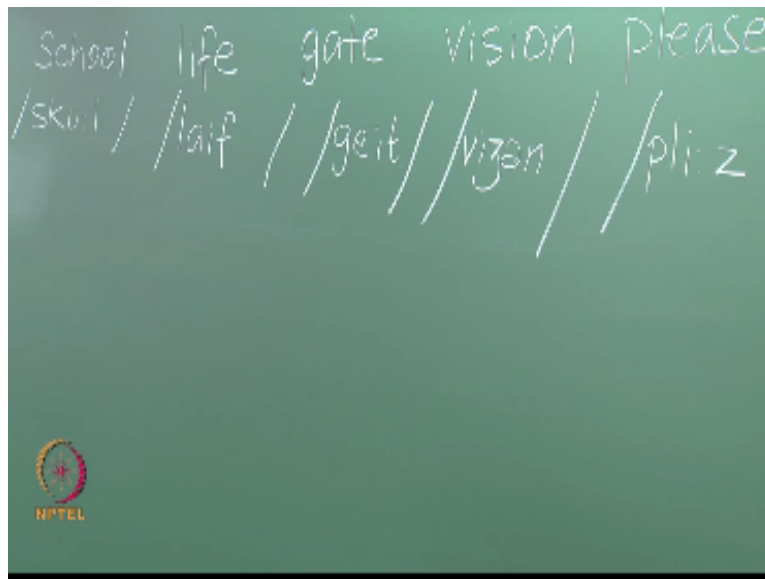 School life gate vision please
/sku:l/ /laif/ /geit/ /viʒən/ /pli:z
NPTEL